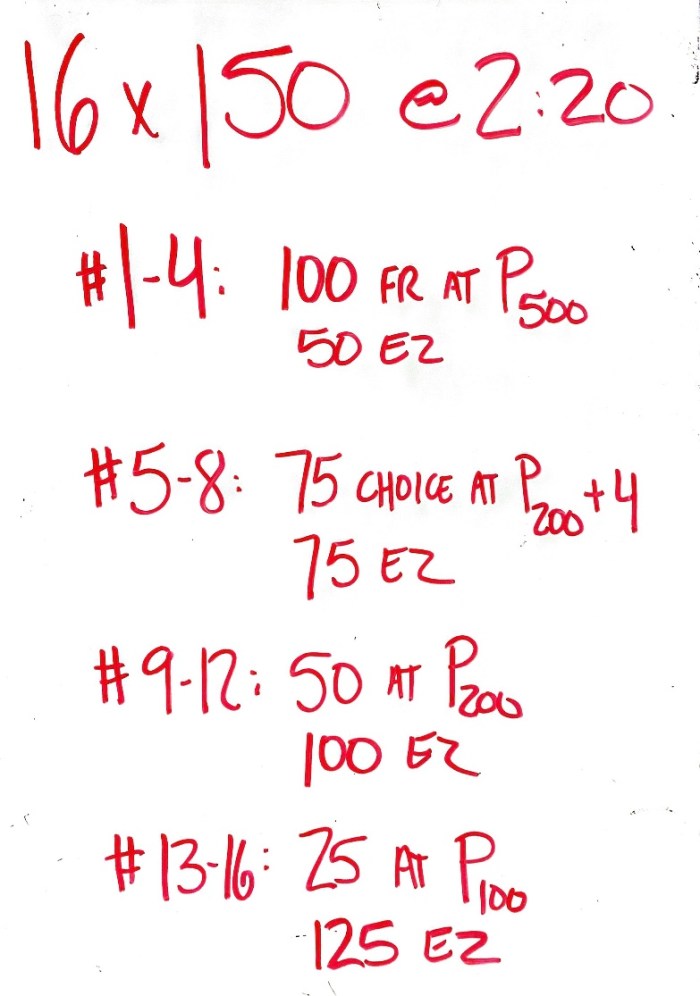 16 x 150 @ 2:20
#1-4: 100 FR AT P500
50 EZ
#5-8: 75 CHOICE AT P200+4
75 EZ
#9-12: 50 AT P200
100 EZ
#13-16: 25 AT P100
125 EZ